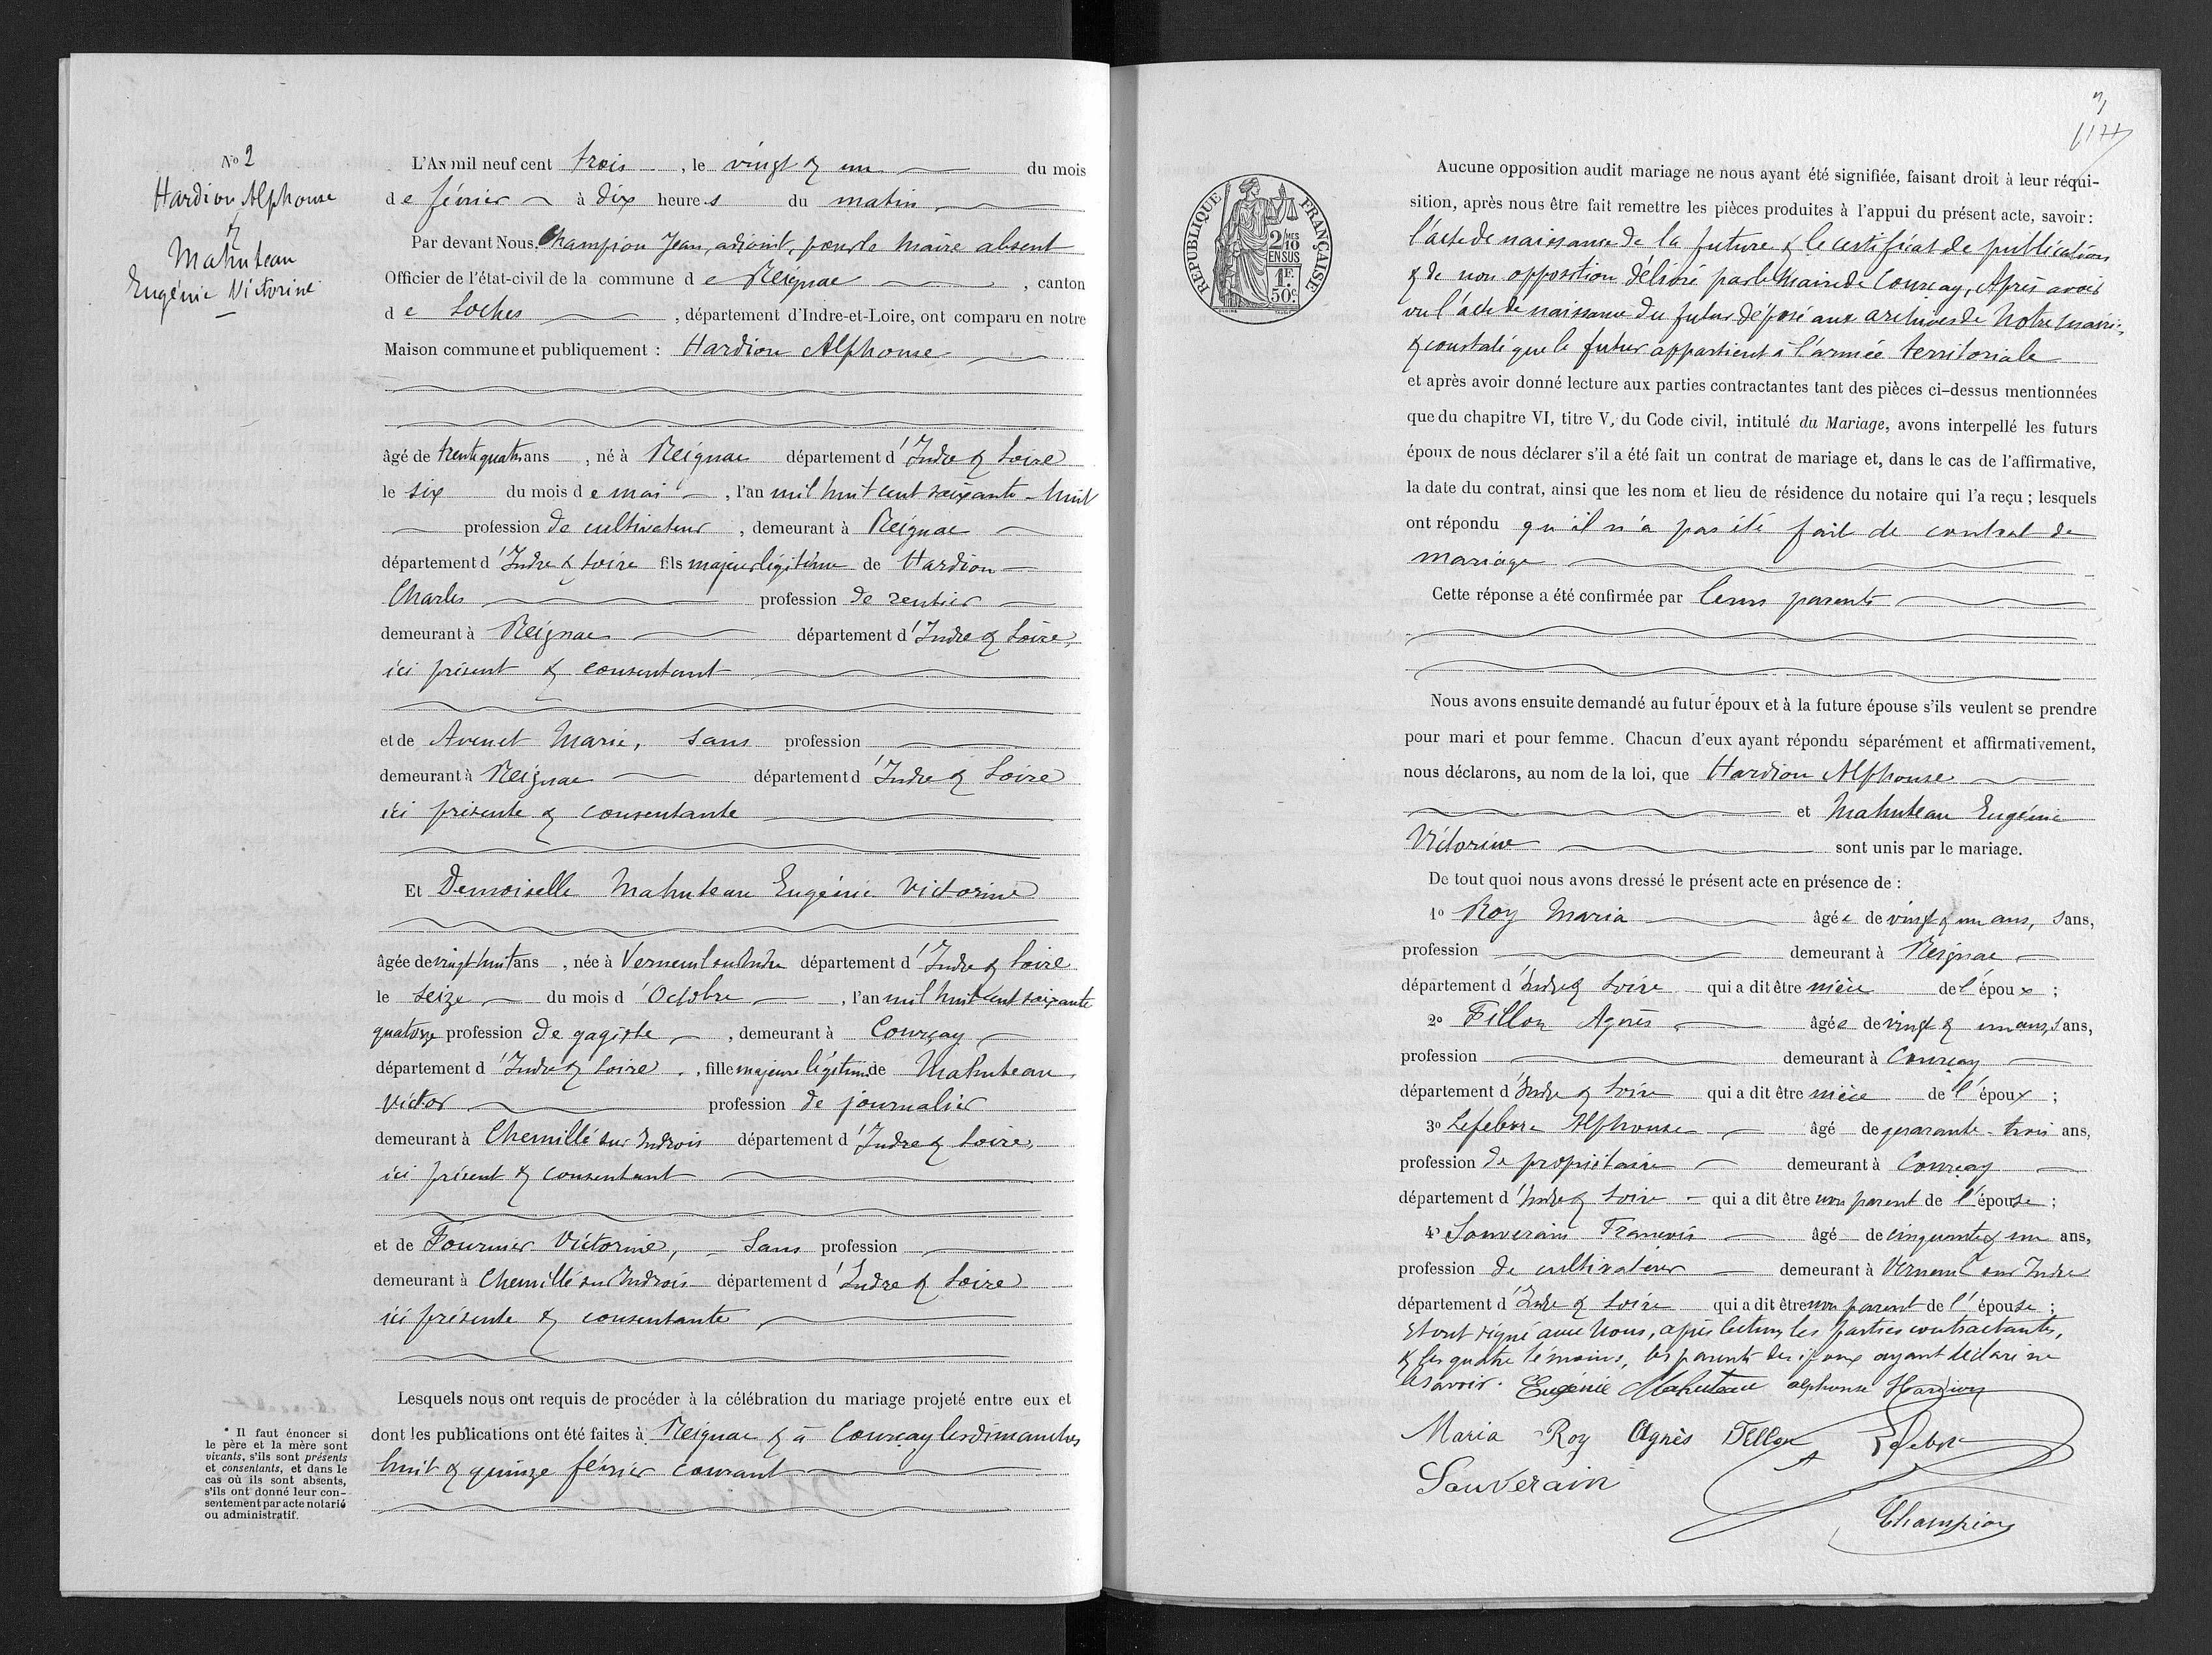 N° 2
Hardion Alphonse
&
Mahuteau
Eugénie Victorine
L'AN mil neuf cent trois, le vingt & un du mois
de février à dix heures du matin,
Par devant Nous, Champion Jean, adjoint, pour le maire absent
Officier de l'état-civil de la commune de Reignac, canton
de Loches, département d'Indre-et-Loire, ont comparu en notre
Maison commune et publiquement : Hardion Alphonse
âgé de trente quatre ans, né à Reignac département d'Indre & Loire
le six du mois de mai, l'an mil huit cent soixante-huit
profession de cultivateur, demeurant à Reignac
département d'Indre & Loire fils majeur légitime de Hardion
Charles profession de rentier
demeurant à Reignac département d'Indre & Loire,
ici présent & consentant
et de Avenet Marie, sans profession
demeurant à Reignac département d'Indre & Loire
ici présente & consentante
Et Demoiselle Mahuteau Eugénie Victorine
âgée de vingt huit ans, née à Verneuil sur Indre département d'Indre & Loire
le seize du mois d'Octobre, l'an mil huit cent soixante
quatorze profession de gagiste, demeurant à Courçay
département d'Indre & Loire, fille majeure légitime de Mahuteau
Victor profession de journalier
demeurant à Chemillé sur Indrois département d'Indre & Loire,
ici présent & consentant
et de Fournier Victorine, sans profession
demeurant à Chemillé sur Indrois département d'Indre & Loire
ici présente & consentante
Lesquels nous ont requis de procéder à la célébration du mariage projeté entre eux et
dont les publications ont été faites à Reignac & à Courçay les dimanches
huit & quinze février courant
* Il faut énoncer si
le père et la mère sont
vivants, s'ils sont présents
et consentants, et dans le
cas où ils sont absents,
s'ils ont donné leur con-
sentement par acte notarié
ou administratif.
3
RÉPUBLIQUE FRANÇAISE
2/10 MES
EN SUS
1F.
50c.
Aucune opposition audit mariage ne nous ayant été signifiée, faisant droit à leur réqui-
sition, après nous être fait remettre les pièces produites à l'appui du présent acte, savoir :
l'acte de naissance de la future & le certificat de publications
& de non opposition délivré par le Maire de Courçay, Après avoir
vu l'acte de naissance du futur déposé aux archives de Notre mairie,
& constaté que le futur appartient à l'armée territoriale
et après avoir donné lecture aux parties contractantes tant des pièces ci-dessus mentionnées
que du chapitre VI, titre V, du Code civil, intitulé du Mariage, avons interpellé les futurs
époux de nous déclarer s'il a été fait un contrat de mariage et, dans le cas de l'affirmative,
la date du contrat, ainsi que les nom et lieu de résidence du notaire qui l'a reçu ; lesquels
ont répondu qu'il n'a pas été fait de contrat de
mariage
Cette réponse a été confirmée par leurs parents
Nous avons ensuite demandé au futur époux et à la future épouse s'ils veulent se prendre
pour mari et pour femme. Chacun d'eux ayant répondu séparément et affirmativement,
nous déclarons, au nom de la loi, que Hardion Alphonse
et Mahuteau Eugénie
Victorine sont unis par le mariage.
De tout quoi nous avons dressé le présent acte en présence de :
1° Roy Maria âgée de vingt & un ans, sans,
profession demeurant à Reignac
département d'Indre & Loire qui a dit être nièce de l'époux ;
2° Fillon Agnès âgée de vingt & un ans, sans,
profession demeurant à Courçay
département d'Indre & Loire qui a dit être nièce de l'époux ;
3° Lefebvre Alphonse âgé de quarante-trois ans,
profession de propriétaire demeurant à Courçay
département d'Indre & Loire qui a dit être non parent de l'épouse ;
4° Souverain François âgé de cinquante & un ans,
profession de cultivateur demeurant à Verneuil sur Indre
département d'Indre & Loire qui a dit être non parent de l'épouse ;
Et ont signé avec Nous, après lecture, les parties contractantes,
& les quatre témoins, les parents des époux ayant déclaré ne
le savoir. Eugénie Mahuteau alphonse Hardion
Maria Roy Agnès Fillon Lefebvre
Souverain
Champion